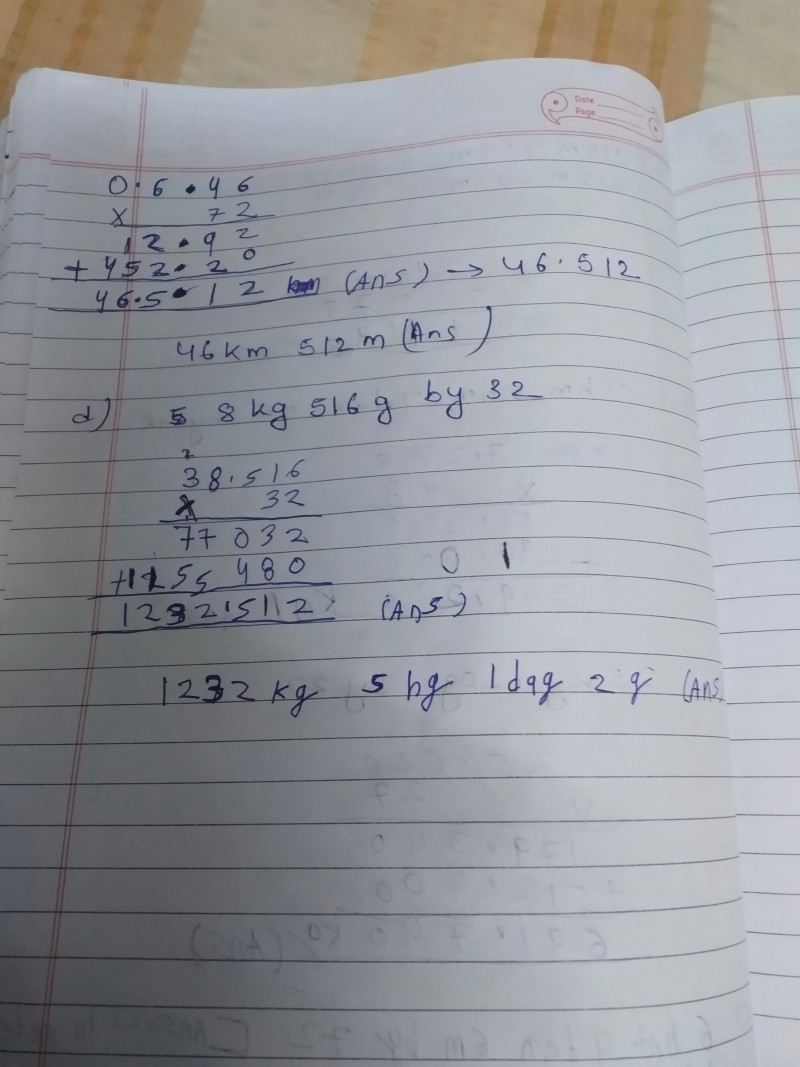 Date
Page
0.6.46
x 72
12.92
+452.20
46.5.12 km (Ans) → 46.512
46km 512m (Ans)
d) 8 kg 516 g by 32
7
38.516
x 32
77 032
+1155 480 0 1
1232.512 (Ans)
1232 kg 5 hg 1dag 2 g (Ans